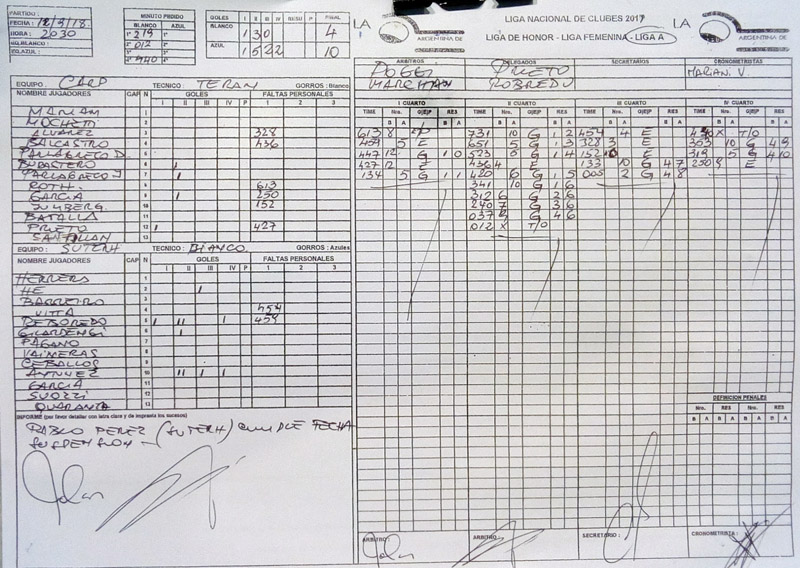 PARTIDO:
FECHA: 18/3/18
HORA: 2030
EQ.BLANCO:
EQ.AZUL:
MINUTO PEDIDO
BLANCO AZUL
1° 219 1°
2° 012 2°
3° 3°
4° 440 4°
GOLES I II III IV RESU P FINAL
BLANCO 1 3 0 4
AZUL 1 5 2 2 10
LIGA NACIONAL DE CLUBES 2017
LIGA DE HONOR - LIGA FEMENINA - LIGA A
LA
ARGENTINA DE
LA
ARGENTINA DE
ARBITROS DELEGADOS SECRETARIOS CRONOMETRISTAS
POGGI PRIETO MARIAN. V.
MARCHAN ROBREDU
EQUIPO: CARP TECNICO: TERAN GORROS: Blanco
NOMBRE JUGADORES CAP N GOLES FALTAS PERSONALES
I II III IV P 1 2 3
1
MUCHETTI 2
ALVAREZ 3 328
BALCASTRO 4 436
PARLAGRECO D. 5
BURASTERO 6 II
PARLAGRECO J 7 II
ROTH. 8 613
GARCIA 9 II 250
10 152
BATALLA 11
PRIETO 12 I 427
SANTILLAN 13
EQUIPO: SUTERH TECNICO: BIANCO GORROS: Azules
NOMBRE JUGADORES CAP N GOLES FALTAS PERSONALES
I II III IV P 1 2 3
HERRERS 1
HE 2 I
BARREIRO 3
VITTA 4 454
REBOREDO 5 I II I 459
GILARDENGI 6
PAGANO 7
VAIMERAS 8
CEBALLOS 9
10 II I I
GARCIA 11
SUOZZI 12
QUARANTA 13
INFORME (por favor detallar con letra clara y de imprenta los sucesos)
PABLO PEREZ (SUTERH) CUMPLE FECHA
SUSPENSION -
I CUARTO II CUARTO III CUARTO IV CUARTO
TIME Nro. G|E|P RES
B A B A
613 8
459 5 E
447 12 G 1 0
427 12 E
134 5 G 1 1
731 10 G 1 2
651 5 G 1 3
523 G 1 4
436 4 E
420 6 G 1 5
341 10 G 1 6
312 6 G 2 6
240 7 G 3 6
037 G 4 6
012 X T/O
454 4 E
328 3 E
152 10 E
133 10 G 4 7
005 2 G 4 8
440 X T/O
303 10 G 4 9
319 5 G 4 10
250 9 E
DEFINICION PENALES
Nro. RES Nro. RES
B A B A B A B A
ARBITRO: ARBITRO: SECRETARIO: CRONOMETRISTA: